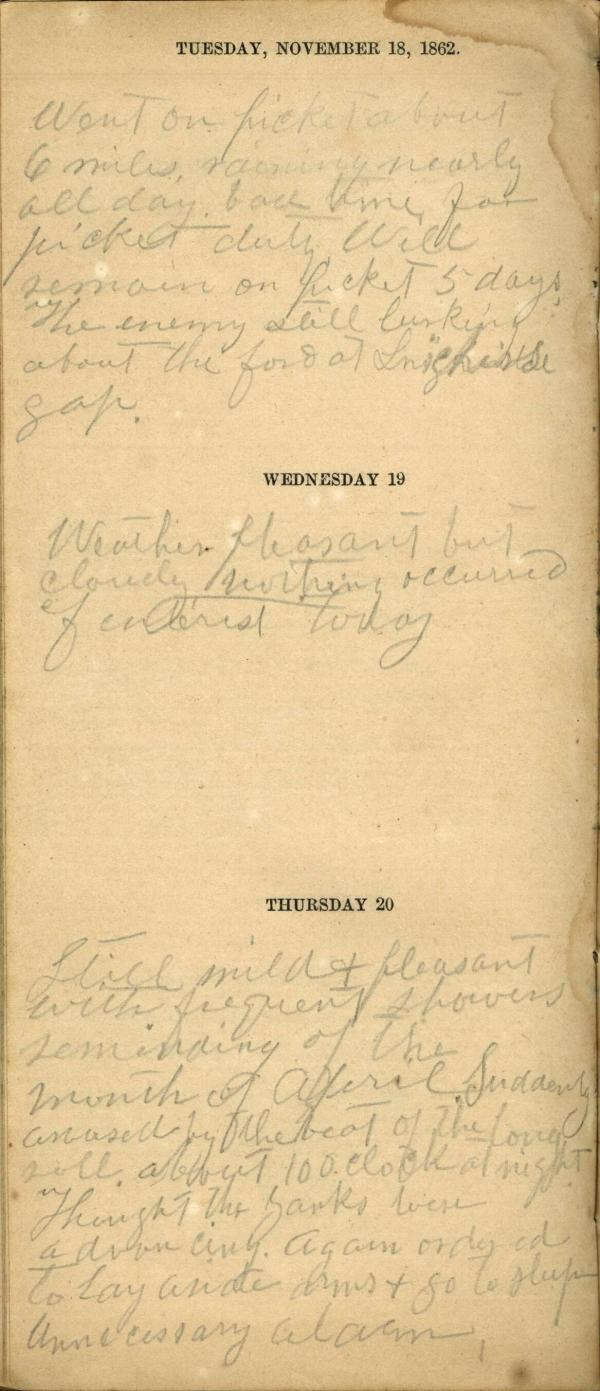 TUESDAY, NOVEMBER 18, 1862.
Went on picket about
6 miles, raining nearly
all day. bad time for
picket duty Will
remain on picket 5 days.
The enemy still lurking
about the ford at
gap.
WEDNESDAY 19
Weather pleasant but
cloudy nothing occurred
of interest today
THURSDAY 20
Still mild & pleasant
with frequent showers
reminding of the
month of April. Suddenly
aroused by the beat of the long
roll. about 10 O.clock at night
Thought the Yanks were
advancing. Again ordered
to lay aside arms & go to sleep
Unnecessary alarm.